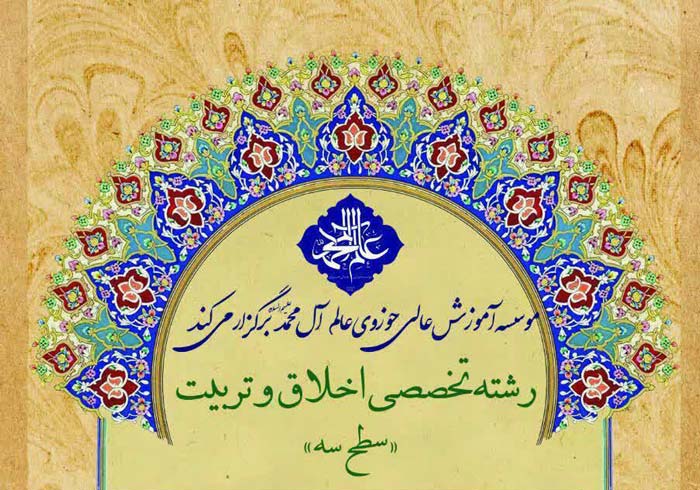 عالم آل محمد
موسسه آموزش عالی حوزوی عالم آل محمد علیه‌السلام برگزار می کند
رشته تخصصی اخلاق و تربیت
«سطح سه»